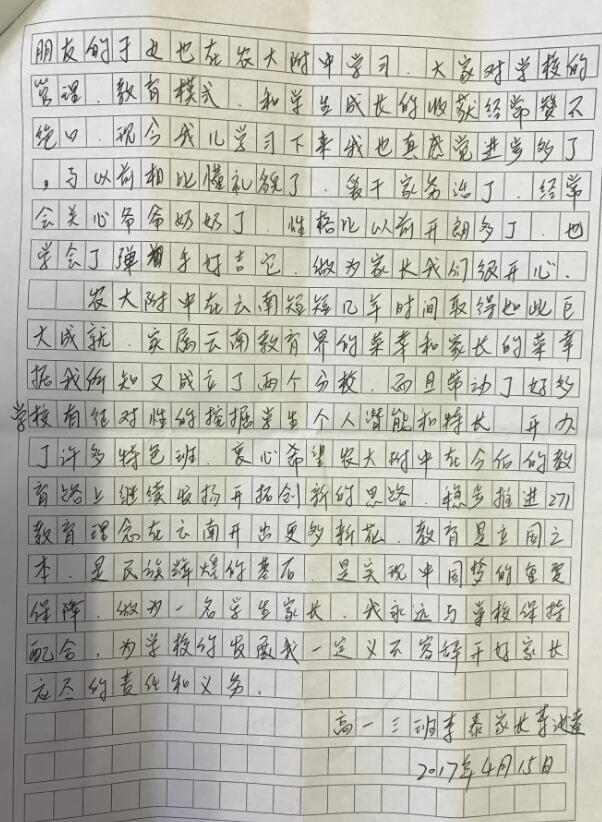 朋友的子女也在农大附中学习、大家对学校的
管理、教育模式、和学生成长的收获经常赞不
绝口、现今我儿学习下来我也真感觉进步多了
，与以前相比懂礼貌了、爱干家务活了、经常
会关心爷爷奶奶了、性格比以前开朗多了、也
学会了弹手好吉它、做为家长我们很开心、
农大附中在云南短短几年时间取得如此巨
大成就、实属云南教育界的荣幸和家长的荣幸
据我所知又成立了两个分校、而且带动了好多
学校有针对性的挖掘学生个人潜能和特长、开办
了许多特色班、衷心希望农大附中在今后的教
育路上继续发扬开拓创新的思路、稳步推进271
教育理念在云南开出更多新花、教育是立国之
本、是民族辉煌的基石、是实现中国梦的重要
保障、做为一名学生家长、我永远与学校保持
配合、为学校的发展我一定义不容辞开好家长
应尽的责任和义务、
高一三班李泰家长李
2017年4月15日